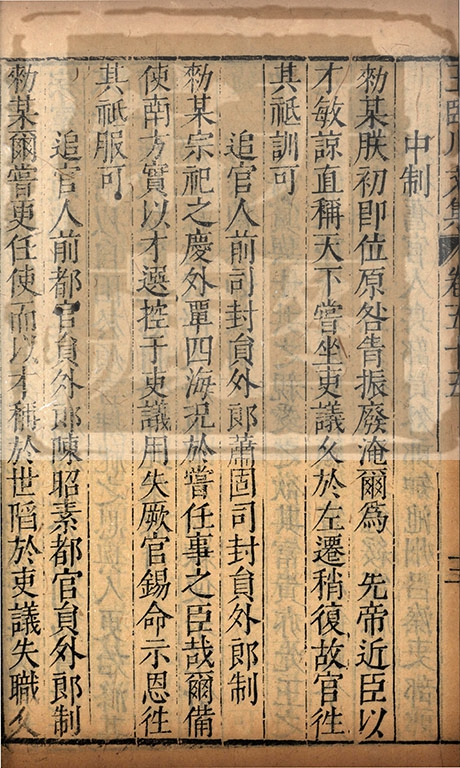 王臨川文集 卷五十五 三
中制
勑某朕初即位原咎眚振廢淹爾爲 先帝近臣以
才敏諒直稱天下嘗坐吏議久於左遷稍復故官徃
其祗訓可
追官人前司封員外郎蕭固司封員外郎制
勑某宗祀之慶外單四海况於嘗任事之臣哉爾備
使南方實以才選控于吏議用失厥官錫命示恩徃
其祗服可
追官人前都官員外郎陳昭素都官員外郎制
勑某爾嘗吏任使而以才稱於世䧟於吏議失職久